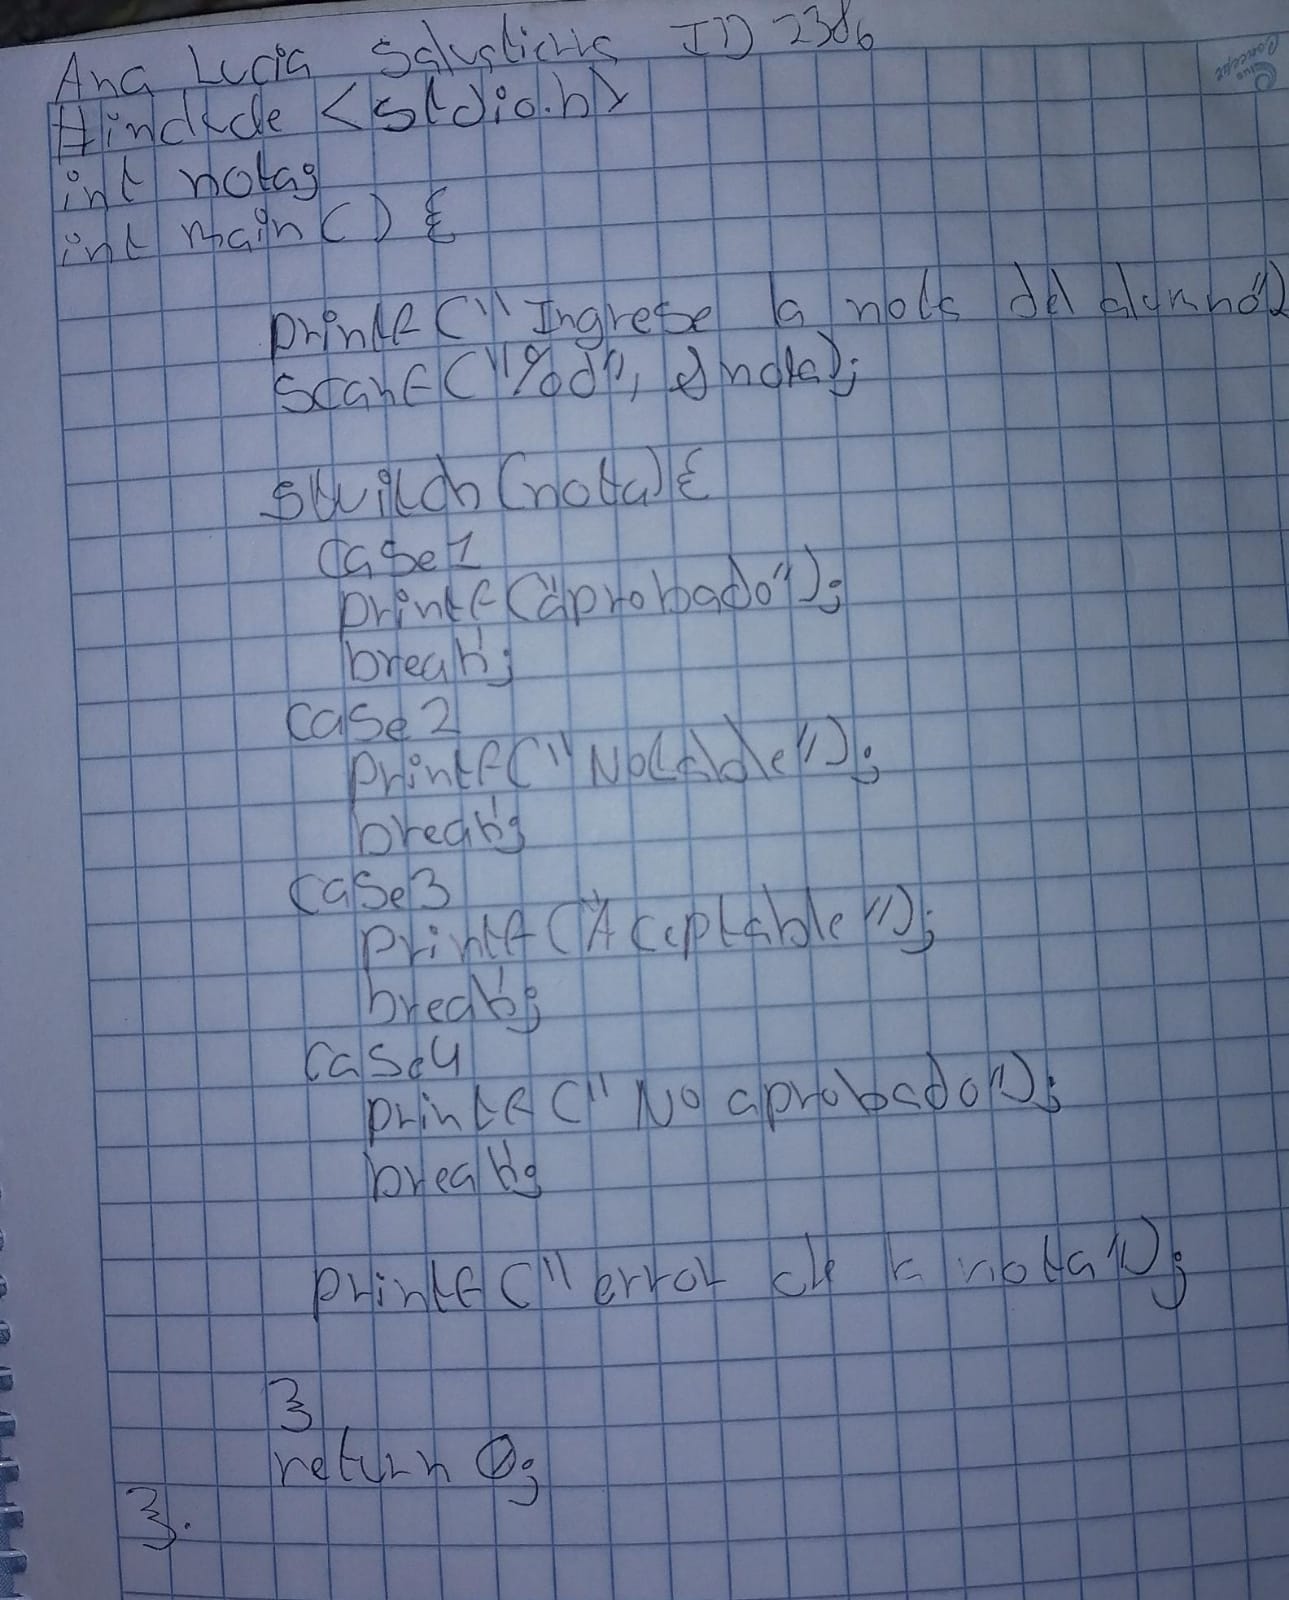 Ana Lucia ID 2386
#include <stdio.h>
int nota;
int main() {
printf("Ingrese la nota del alumno")
scanf("%d", &nota);
switch (nota) {
case 1
printf("aprobado");
break;
case 2
printf("Notable");
break;
case 3
printf("Aceptable");
break;
case 4
printf("No aprobado");
break;
printf("error de la nota");
}
return 0;
}.